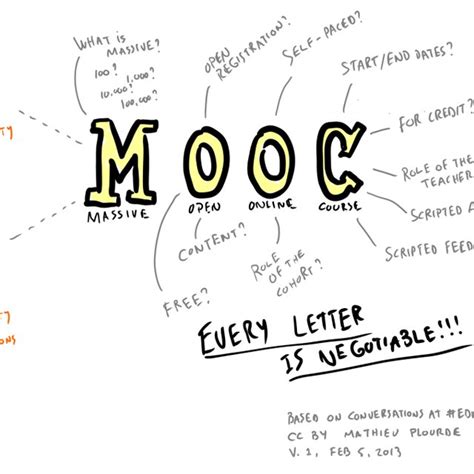 WHAT IS
MASSIVE?
100? 1,000?
10,000?
100,000?
OPEN
REGISTRATION?
SELF-PACED?
START/END DATES?
FOR CREDIT?
ROLE OF THE
TEACHER
SCRIPTED
SCRIPTED FEED
MOOC
MASSIVE OPEN ONLINE COURSE
CONTENT?
FREE?
ROLE
OF THE
COHORT?
EVERY LETTER
IS NEGOTIABLE!!!
BASED ON CONVERSATIONS AT #ED
CC BY MATHIEU PLOURDE
V. 1, FEB 5, 2013